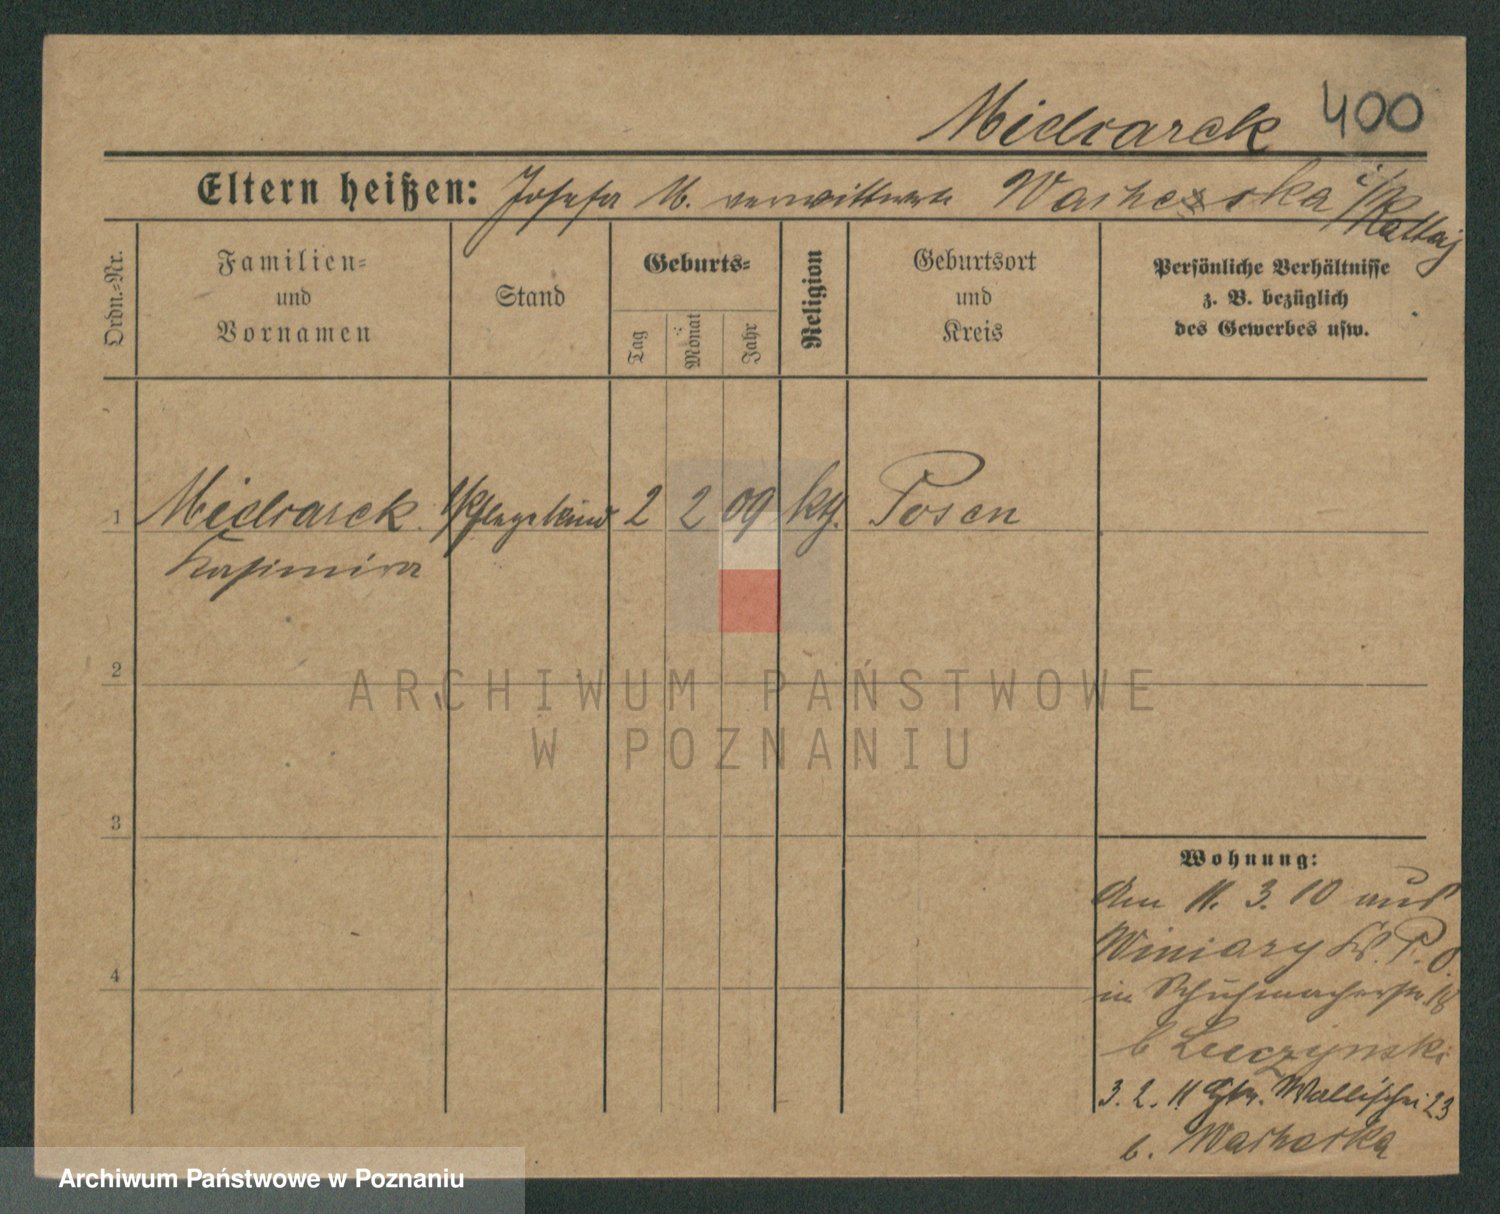 Midrarek 400
Eltern heißen: Josefa M. verwittwete
Ordn.-Nr.
Familien-
und
Vornamen
Stand
Geburts-
Tag
Monat
Jahr
Religion
Geburtsort
und
Kreis
Persönliche Verhältnisse
z. B. bezüglich
des Gewerbes usw.
1 Midrarek. Pflegekind 2 2 09 kth. Posen
Kasimira
2
3
4
Wohnung:
Am 11. 3. 10 aus
Winiary Kr. P. O.
in Schuhmacherstr. 18
b Luczynski
3. 2. 11 Wallischei 23
b.
ARCHIWUM PAŃSTWOWE
W POZNANIU
Archiwum Państwowe w Poznaniu